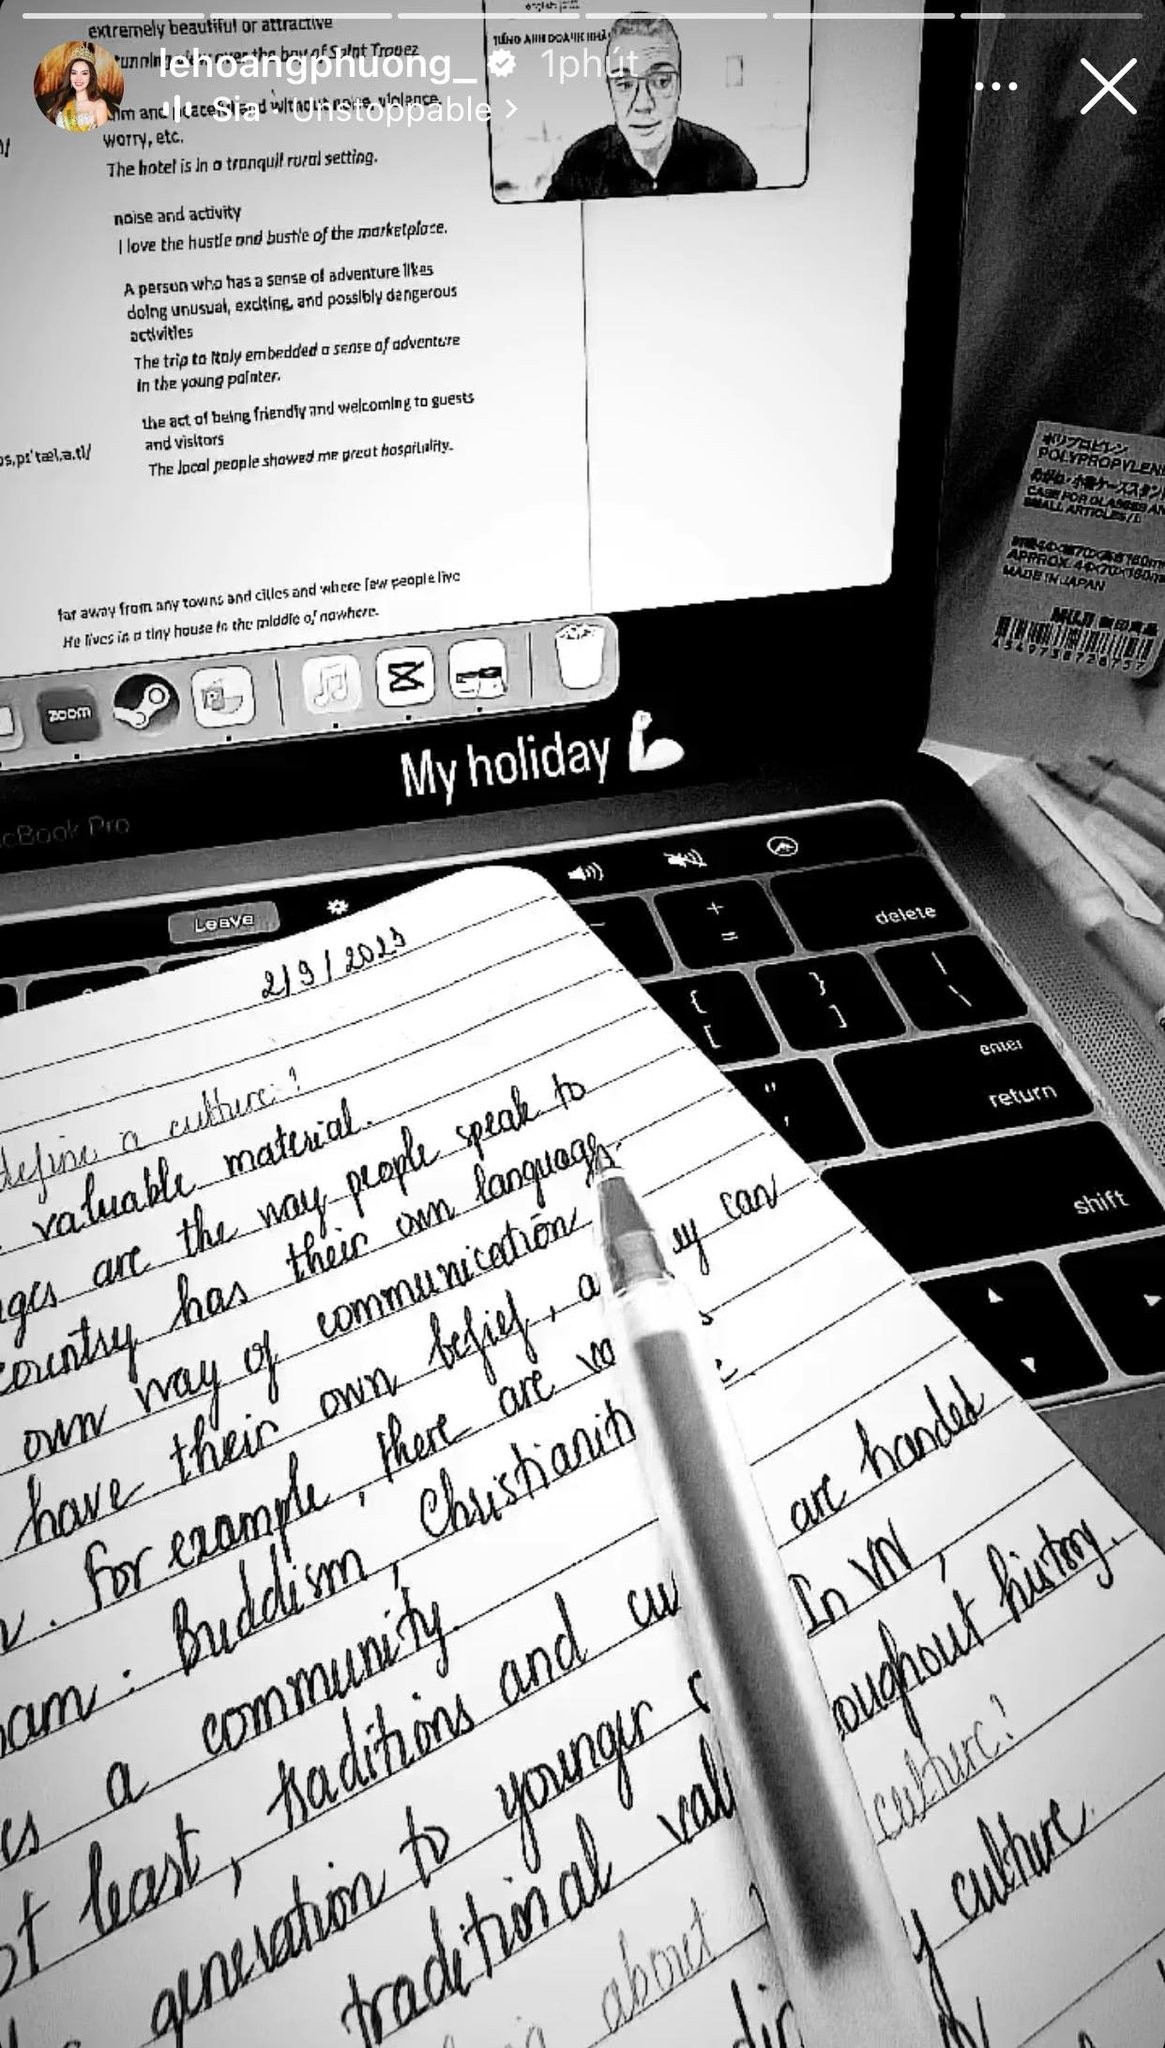 extremely beautiful or attractive
lehoangphuong_ 1phút
Sia · Unstoppable >
worry, etc.
The hotel is in a tranquil rural setting.
noise and activity
I love the hustle and bustle of the marketplace.
A person who has a sense of adventure likes
doing unusual, exciting, and possibly dangerous
activities
The trip to Italy embedded a sense of adventure
in the young painter.
the act of being friendly and welcoming to guests
and visitors
The local people showed me great hospitality.
far away from any towns and cities and where few people live
He lives in a tiny house in the middle of nowhere.
TIẾNG ANH DOANH
ポリプロピレン
POLYPROPYLENE
めがね・小物ケーススタンド
CASE FOR GLASSES AN
SMALL ARTICLES/
MADE IN JAPAN
MUJI 無印良品
4549738728757
zoom
My holiday 💪
cBook Pro
Leave
delete
+
=
{
[
}
]
|
\
enter
return
"
'
shift
2/9/2023
define a culture?
valuable material.
ges are the way people speak to
country has their own language.
own way of communication ey can
have their own belief, a
For example, there are
am: Buddism, Christianit
es a community. are handed
t least, traditions and cu In VN,
generation to younger oughout history.
traditional val culture?
about y culture